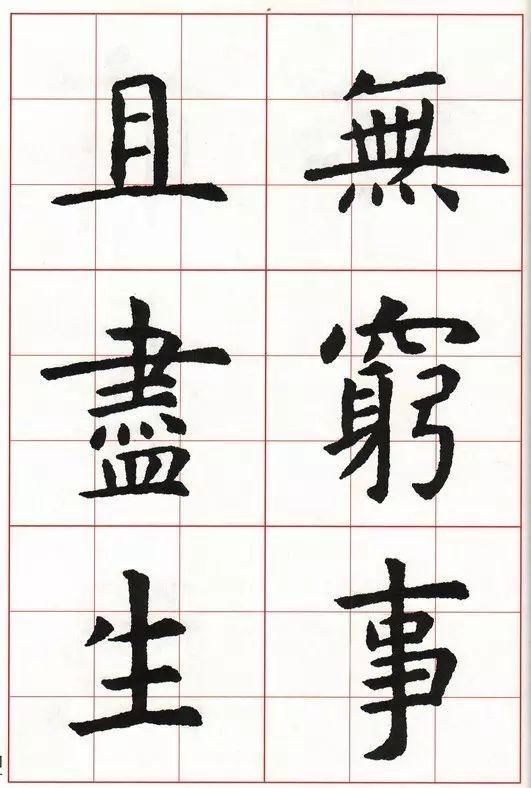 無窮事
且盡生